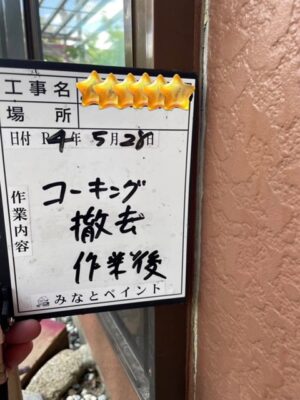 工事名
場所
日付 R4年5月28日
作業内容
コーキング
撤去
作業後
みなとペイント